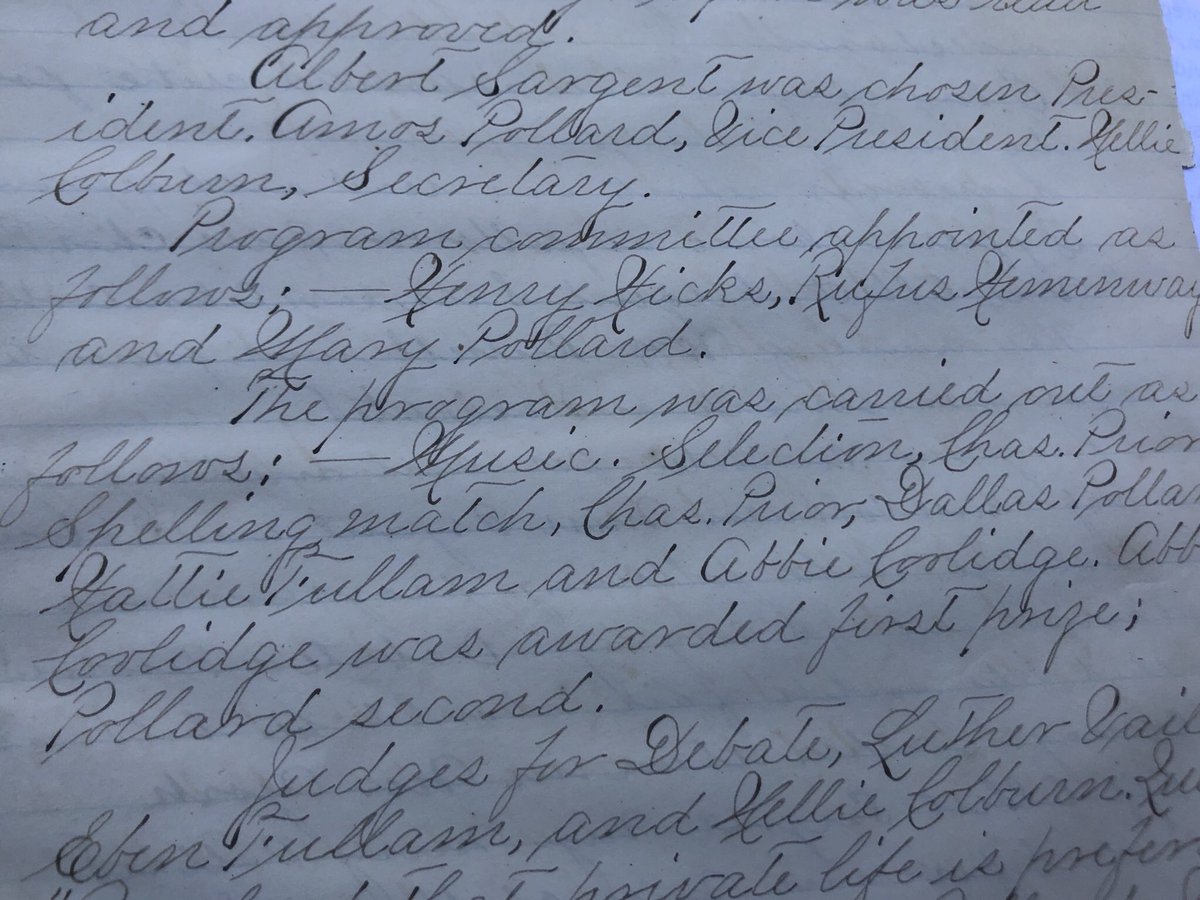 read
and approved.
Albert Sargent was chosen Pres-
ident. Amos Pollard, Vice President. Nellie
Colburn, Secretary.
Program committee appointed as
follows; — Henry Hicks, Rufus Hemenway
and Mary Pollard.
The program was carried out as
follows; — Music. Selection, Chas. Prior
Spelling match, Chas. Prior, Dallas Polla
Hattie Fullam and Abbie Coolidge. Abb
Coolidge was awarded first prize;
Pollard second.
Judges for Debate, Luther Vail
Eben Fullam, and Nellie Colburn. Qu
that private life is prefer